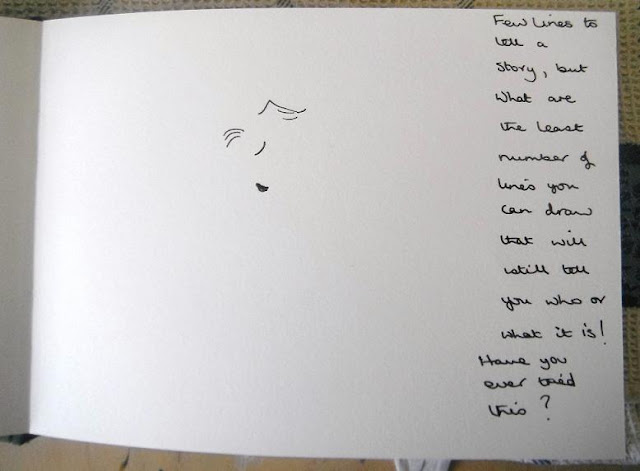 Few lines to
tell a
story, but
what are
the least
number of
lines you
can draw
that will
still tell
you who or
what it is!
Have you
ever tried
this?